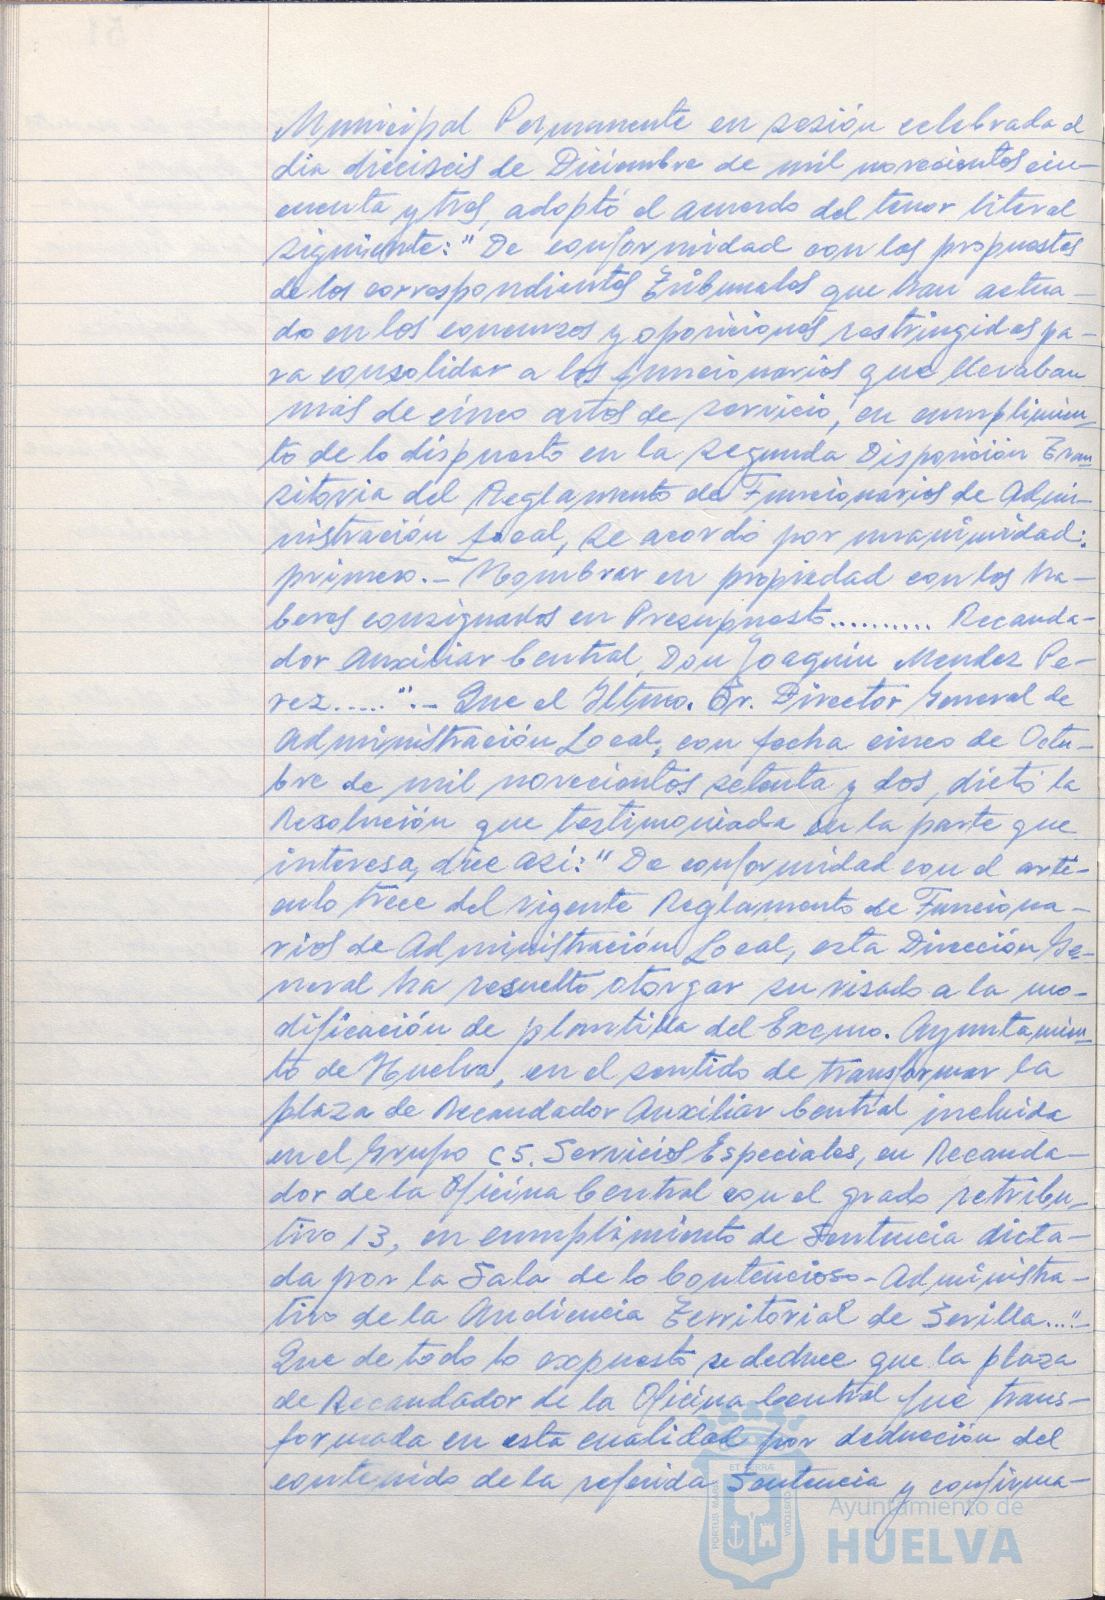 Municipal Permanente en sesión celebrada el
dia dieciseis de Diciembre de mil novecientos cin-
cuenta y tres, adoptó el acuerdo del tenor literal
siguiente: "De conformidad con las propuestas
de los correspondientes Tribunales que han actua-
do en los concursos y oposiciones restringidas pa-
ra consolidar a los funcionarios que llevaban
más de cinco años de servicio, en cumplimien-
to de lo dispuesto en la segunda Disposición Tran-
sitoria del Reglamento de Funcionarios de Admi-
nistración Local, se acordó por unanimidad:
primero.- Nombrar en propiedad con los ha-
beres consignados en Presupuesto.......... Recauda-
dor Auxiliar Central, Don Joaquin Mendez Pe-
rez.....".- Que el Iltmo. Sr. Director General de
Administración Local, con fecha cinco de Octu-
bre de mil novecientos setenta y dos, dictó la
Resolución que testimoniada en la parte que
interesa, dice así: "De conformidad con el artí-
culo trece del vigente Reglamento de Funciona-
rios de Administración Local, esta Dirección Ge-
neral ha resuelto otorgar su visado a la mo-
dificación de plantilla del Excmo. Ayuntamien-
to de Huelva, en el sentido de transformar la
plaza de Recaudador Auxiliar Central incluida
en el Grupo C5. Servicios Especiales, en Recauda-
dor de la Oficina Central con el grado retribu-
tivo 13, en cumplimiento de Sentencia dicta-
da por la Sala de lo Contencioso-Administra-
tivo de la Audiencia Territorial de Sevilla...."-
Que de todo lo expuesto se deduce que la plaza
de Recaudador de la Oficina Central fué trans-
formada en esta cualidad por deducción del
contenido de la referida Sentencia y confirma-
PORTUS MARIS ET TERRAE CUSTODIA
Ayuntamiento de
HUELVA